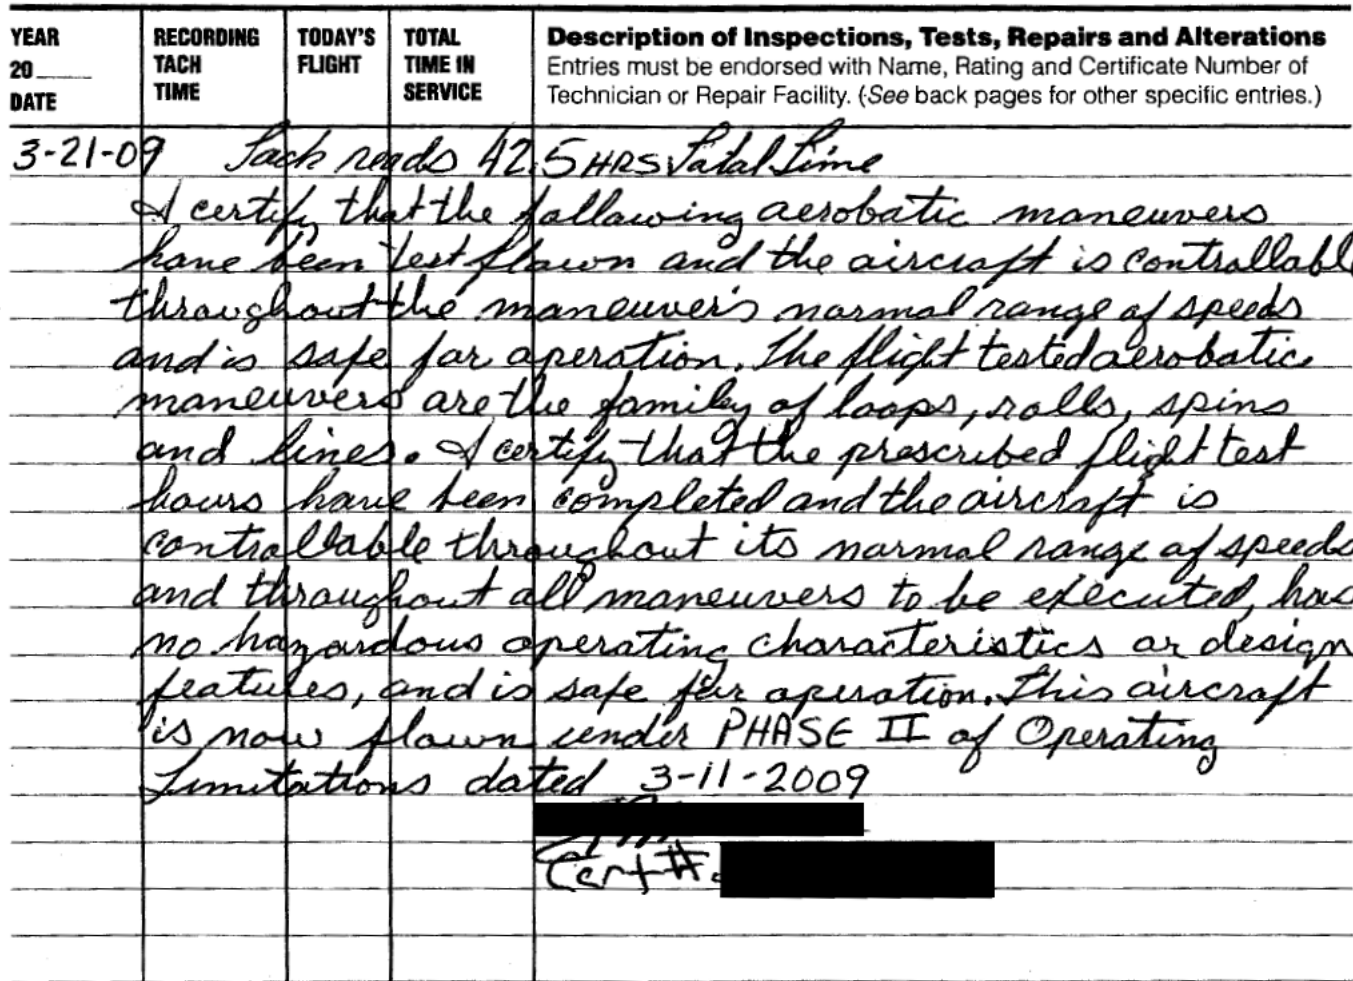 YEAR
20____
DATE
RECORDING
TACH
TIME
TODAY'S
FLIGHT
TOTAL
TIME IN
SERVICE
Description of Inspections, Tests, Repairs and Alterations
Entries must be endorsed with Name, Rating and Certificate Number of
Technician or Repair Facility. (See back pages for other specific entries.)
3-21-09 Tach reads 42.5 HRS Total Time
I certify that the following aerobatic maneuvers
have been test flown and the aircraft is controllable
throughout the maneuver's normal range of speeds
and is safe for operation. The flight tested aerobatic
maneuvers are the family of loops, rolls, spins
and lines. I certify that the prescribed flight test
hours have been completed and the aircraft is
controllable throughout its normal range of speeds
and throughout all maneuvers to be executed, has
no hazardous operating characteristics or design
features, and is safe for operation. This aircraft
is now flown under PHASE II of Operating
Limitations dated 3-11-2009
Cert #.